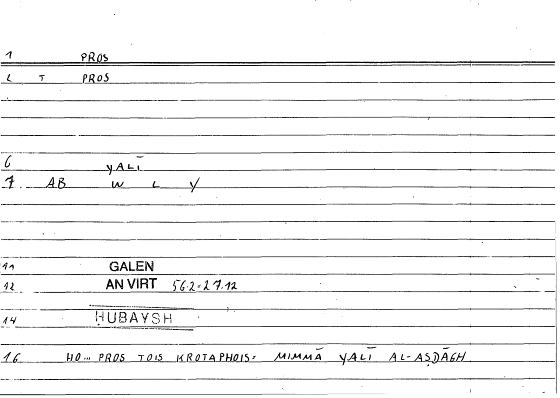 1 PROS
L T PROS
6 YALĪ
7 AB W L Y
11 GALEN
12 AN VIRT 562=27.12
14 HUBAYSH
16 HO... PROS TOIS KROTAPHOIS= MIMMĀ YALĪ AL-AṢDĀGH